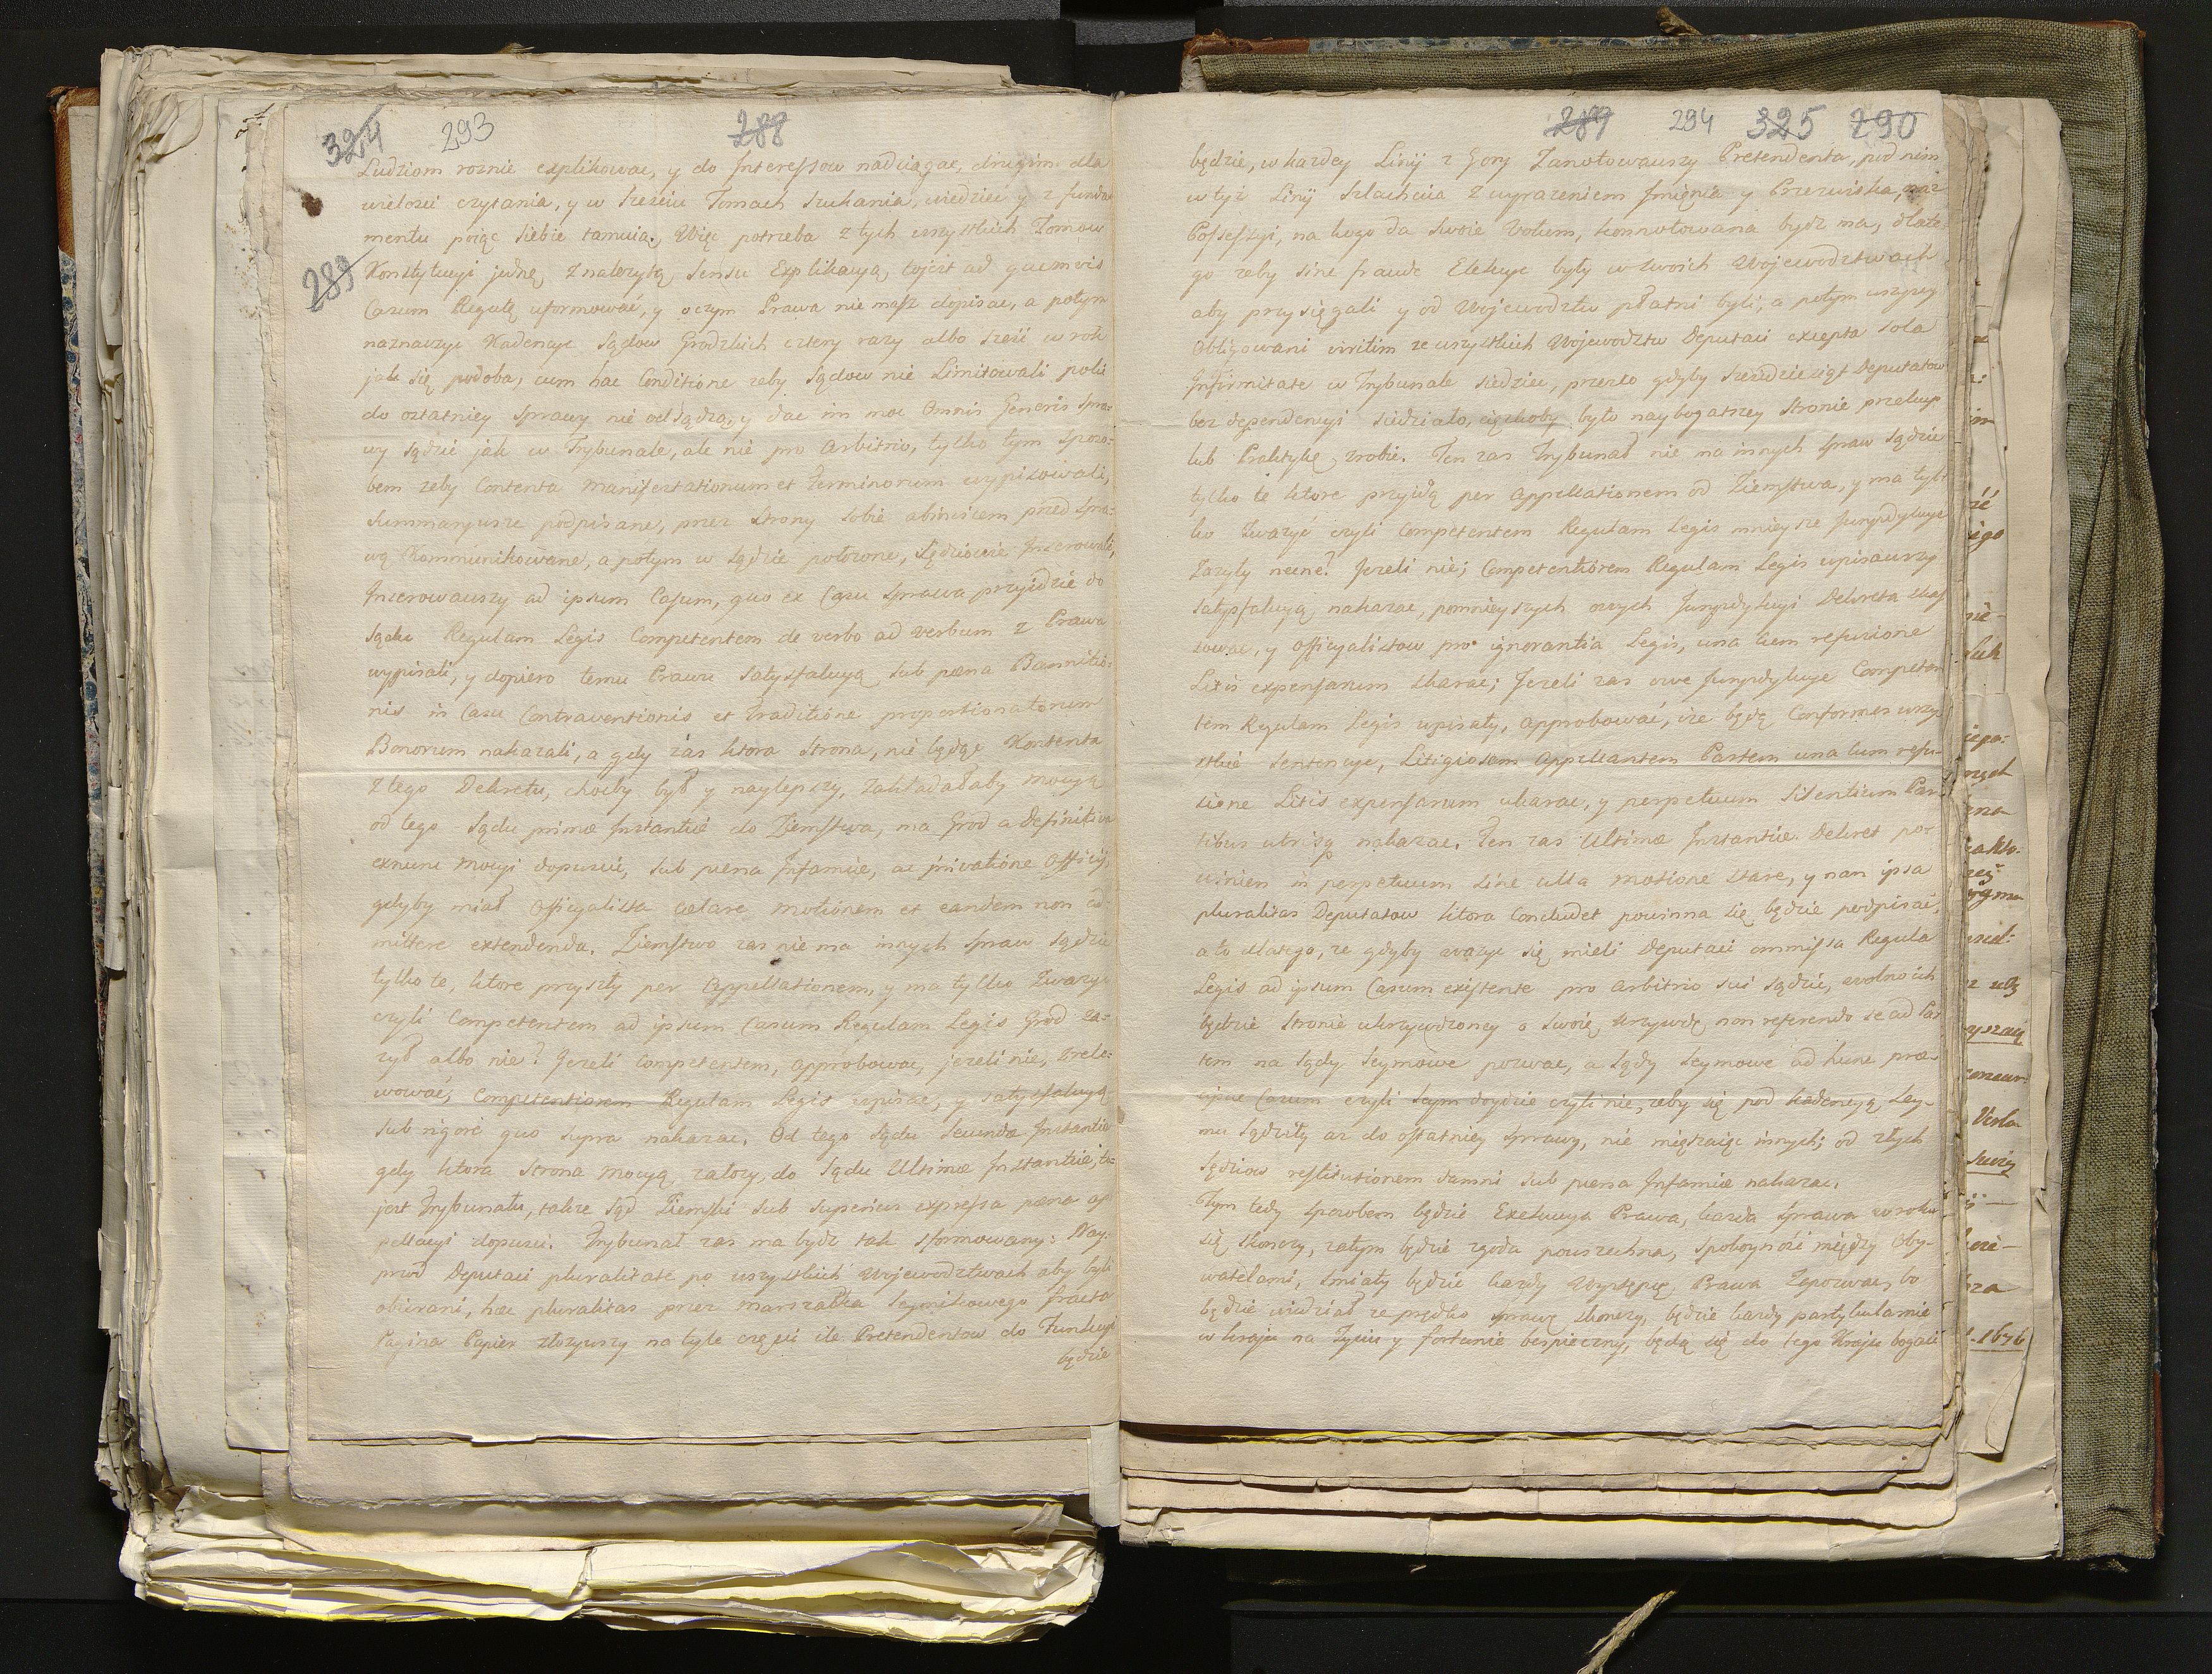 324 293 288
Ludziom roznie explikowac, y do Interessow nadciągac, drugim dla
wielosci czytania, y w szesciu Tomach szukania, wiedziec y z funda
mentu poiąc siebie tamuią. Więc potrzeba z tych wszystkich Tomow
289
Konstytucyi jednę, z należytą sensu Explikacyą, to jest ad quemvis
Casum Regulę uformować, y o czym Prawa nie masz dopisac, a potym
naznaczyc Kadencye Sądow Grodzkich cztery razy albo sześć w rok
jak się podoba, cum hac Conditione zeby Sądow nie Limitowali poki
do ostatniey sprawy nie odsądzą, y dac im moc Omnis Generis spra
wy sądzić jak w Trybunale, ale nie pro arbitrio, tylko tym sposo:
bem zeby Contenta Manifestationum et Terminorum wypisowali,
Summaryusze podpisane, przez strony sobie abinvicem przed spra:
wą Kommunikowane, a potym w sądzie położone, Sędziowie Inserowali,
Inserowawszy ad ipsum Casum, quo ex Casu sprawa przyidzie do
sądu Regulam Legis Competentem de verbo ad verbum z Prawa
wypisali, y dopiero temu Prawu satysfakcyą sub pæna Bannitio:
nis in Casu Contraventionis et traditione proportionatorum
Bonorum nakazali, a gdy zas ktora strona, nie będąc Kontenta
z tego Dekretu, choćby był y naylepszy, zakładałaby mocyą
od tego Sądu primæ Instantiæ do Ziemstwa, ma Grod a Definitiva
exnunc mocyi dopuscic, sub pæna Infamiæ, ac privatione Officij
gdyby miał Officyalista celare motionem et eandem non ad
mittere extendenda. Ziemstwo zas nie ma innych spraw sądzic
tylko te, ktore przyszły per Appellationem, y ma tylko zwazyc
czyli Competentem ad ipsum Casum Regulam Legis Grod za:
zył albo nie? Jezeli competentem, approbowac, jezeli nie, zrele:
wować, Competentiorem Regulam Legis wpisac, y satysfakcyą
sub rigore quo supra nakazac. Od tego sądu secundæ Instantiæ
gdy ktora strona mocyą załozy, do Sądu Ultimæ Instantiæ, to
jest Trybunału, takze Sąd Ziemski sub superius expressa pæna ap
pellacyi dopusci. Trybunał zas ma bydz tak sformowany: Nay:
przod Deputaci pluralitate po wszystkich Wojewodztwach aby byli
obierani, hæc pluralitas przez Marszałka Seymikowego fracta
Pagina Papier złozywszy na tyle części ile Pretendentow do Funkcyi
będzie
289 294 325 290
będzie, w kazdey Linij z Gory zanotowawszy Pretendenta, pod nim
w tyż Linij Szlachcica z wyrazeniem Imienia y Przezwiska, oraz
Possessyi, na kogo da swoie Votum, konnotowana bydz ma, dlate
go zeby sine fraude Elekcye były w swoich Wojewodztwach
aby przysięgali y od Wojewodztw płatni byli; a potym wszyscy
Obligowani viritim ze wszystkich Wojewodztw Deputaci excepta sola
Infirmitate w Trybunale siedziec, przeto gdyby sześdziesiąt Deputatow
bez dependencyi siedziało, cięzkoby było naybogatszey stronie przekup
lub Praktykę zrobic. Ten zas Trybunał nie ma innych spraw sądzic
tylko te ktore przyidą per Appellationem od Ziemstwa, y ma tyl
ko zwazyć czyli Competentem Regulam Legis mnieysze Juryzdykcye
zazyły necne? Jezeli nie; Competentiorem Regulam Legis wpisawszy
satysfakcyą nakazac, pomnieyszych owych Juryzdykcyi Dekreta skas
sowac, y Officyalistow pro ignorantia Legis, una cum refusione
Litis expensarum skarac; Jezeli zas owe Juryzdykcye Competen
tem Regulam Legis wpisały, approbować, iże będą Conformes wszy
stkie sentencye, Litigiosam Appellantem Partem una cum refu-
sione Litis expensarum ukarac, y perpetuum silentium Par-
tibus utrisq nakazac. Ten zas Ultimæ Instantiæ Dekret po-
winien in perpetuum sine ulla motione stare, y non ipsa
pluralitas Deputatow ktora Concludet powinna się będzie podpisać,
a to dlatego, ze gdyby wazyc się mieli Deputaci ommissa Regula
Legis ad ipsum Casum existente pro arbitrio sui sądzic, wolno ich
będzie stronie ukrzywdzoney o swoię krzywdę non referendo se ad Par
tem na Sądy Seymowe pozwac, a Sądy Seymowe ad hunc præ-
cipue Casum czyli Seym doydzie czyli nie, zeby się pod kadencyą Sey-
mu sądziły az do ostatniey sprawy, nie mięszaiąc innych; od złych
Sędziow restitutionem damni sub pæna Infamiæ nakazac.
Tym tedy sposobem będzie Exekucya Prawa, kazda sprawa w roku
się skonczy, zatym będzie zgoda powszechna, spokoyność między Oby-
watelami, smiały będzie kazdy Występcę Prawa zapozwac, bo
będzie widział ze prędko sprawę skonczy, będzie kazdy partykularnie
w kraju na Zyciu y fortunie bespieczny, będą się do tego Kraju bogaci